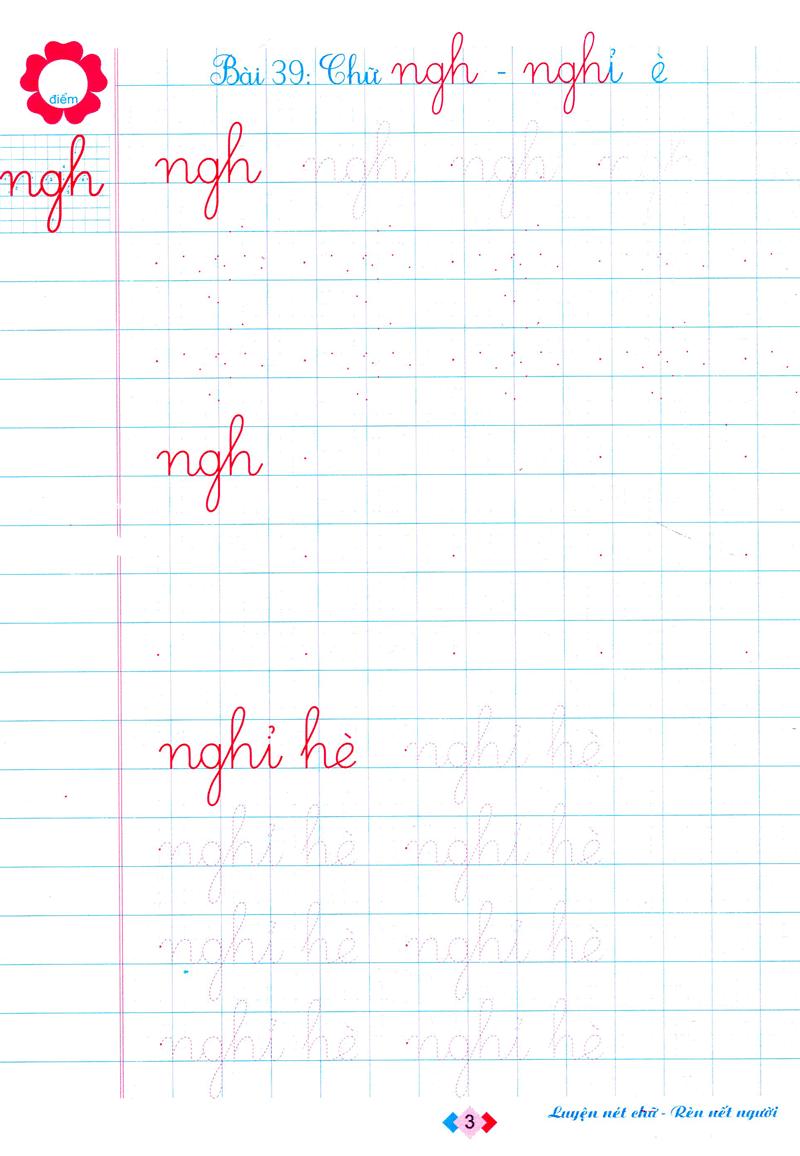 Bài 39: Chữ ngh - nghỉ è
điểm
ngh
ngh ngh ngh
ngh
nghỉ hè nghỉ hè
nghỉ hè nghỉ hè
nghỉ hè nghỉ hè
nghỉ hè nghỉ hè
3
Luyện nét chữ - Rèn nết người